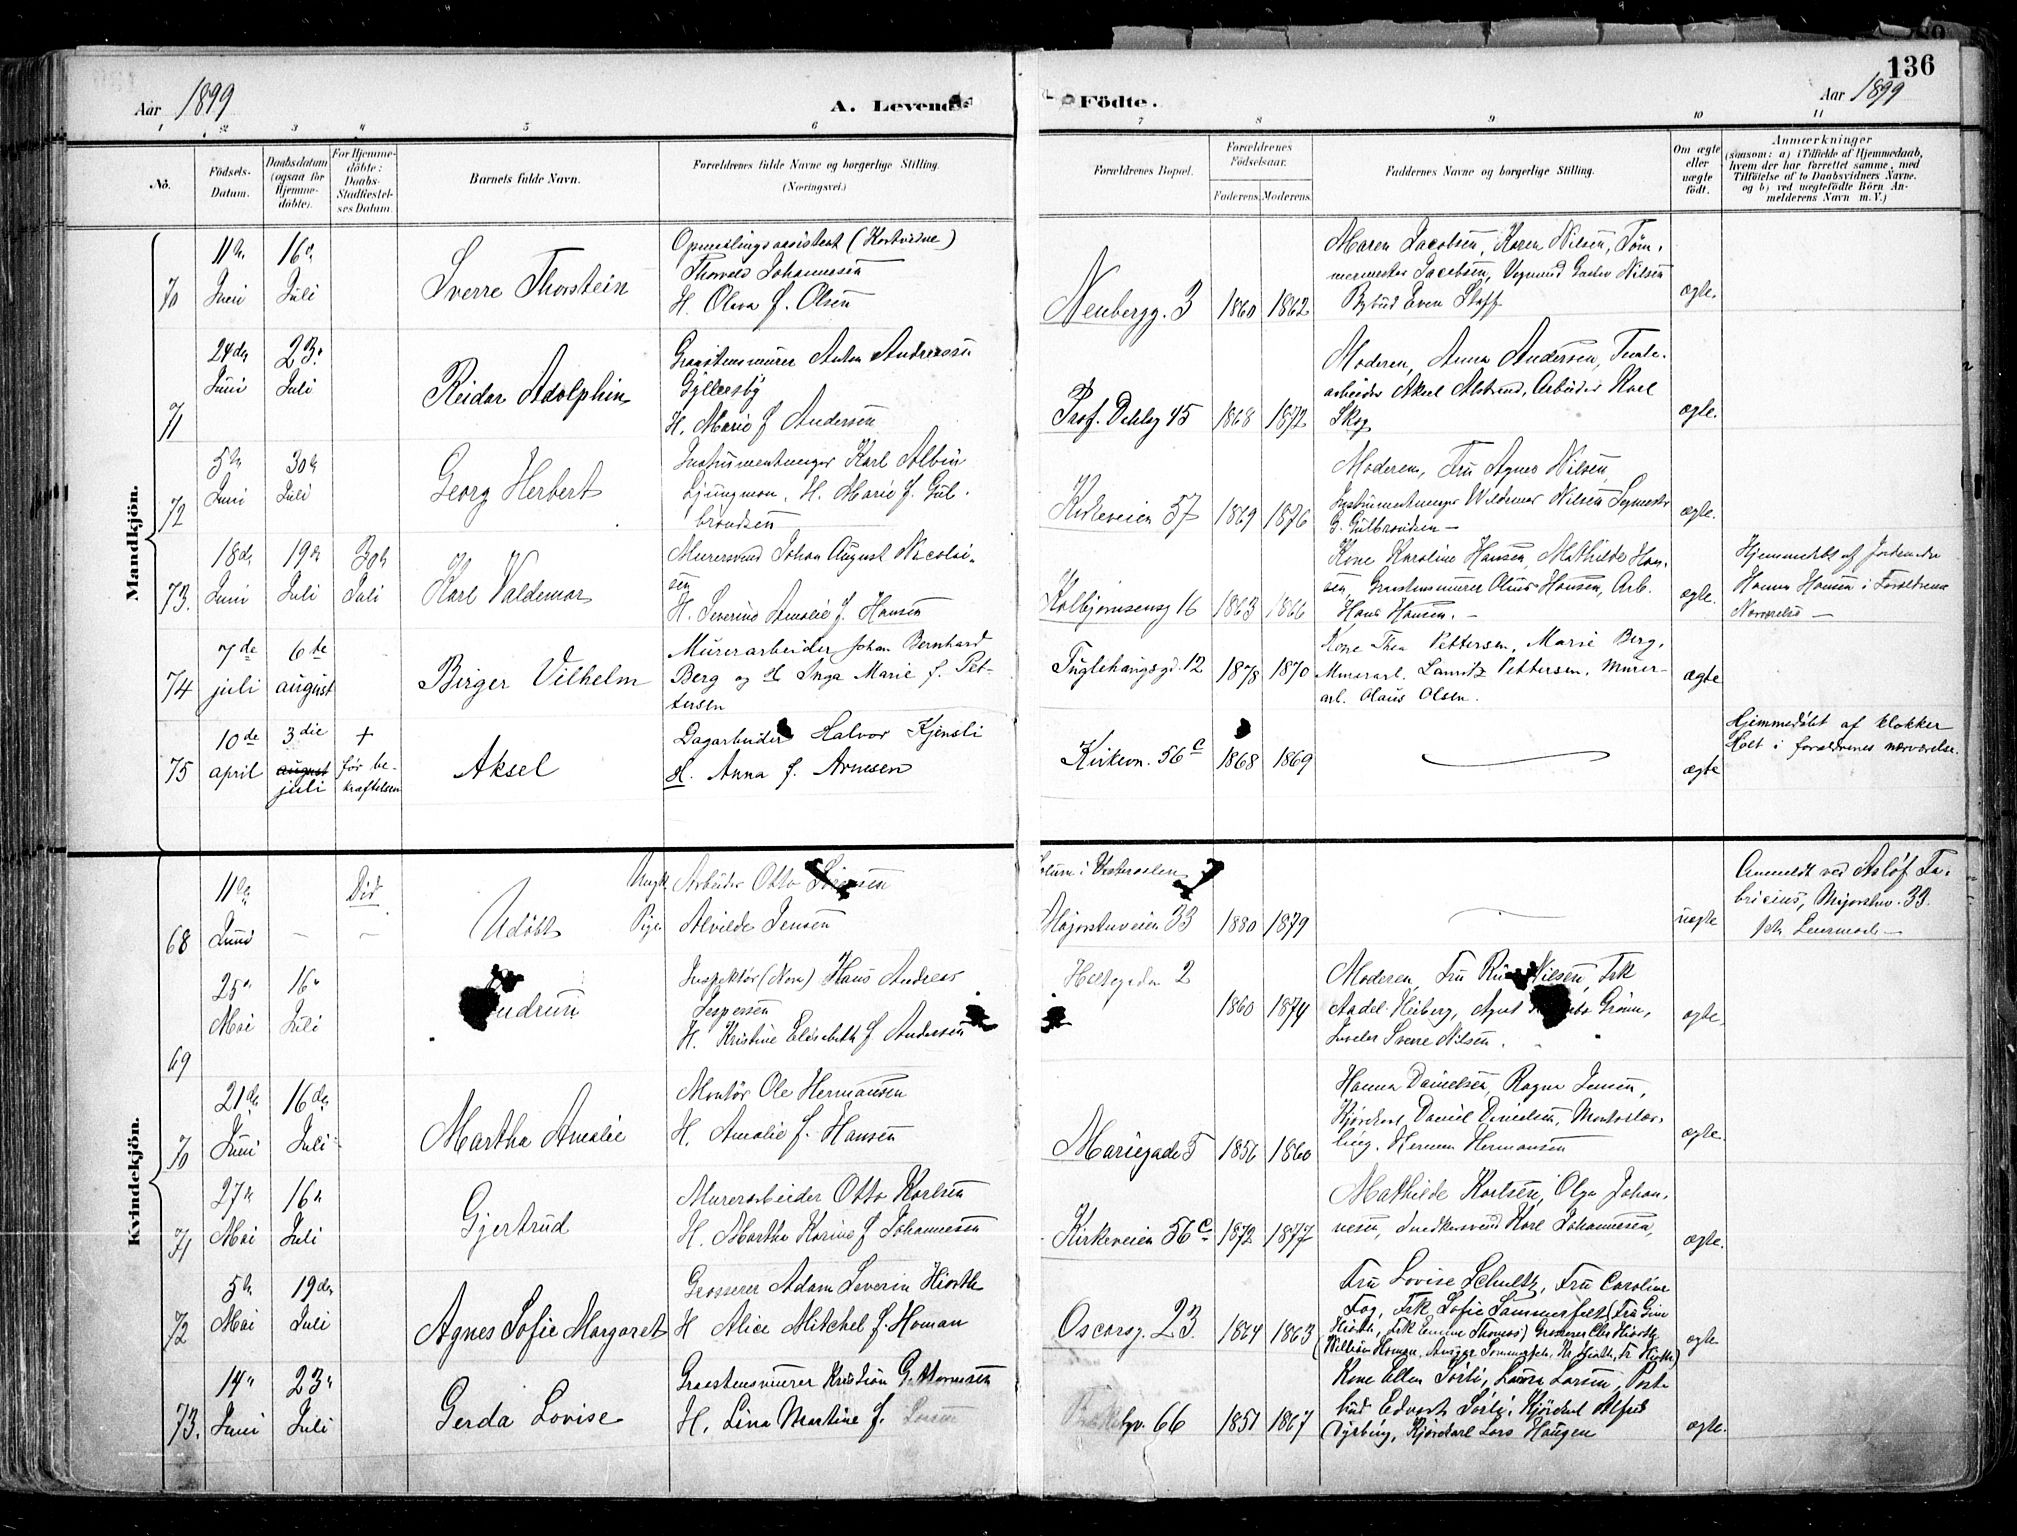 136
Aar 1899
A. Levende Födte.
Aar 1899
1 2 3 4 5 6 7 8 9 10 11
No.
Födsels-Datum.
Daabsdatum (ogsaa for Hjemme-döbte).
For Hjemme-döbte: Daabs-Stadfæstel-ses Datum.
Barnets fulde Navn.
Forældrenes fulde Navne og borgerlige Stilling.
(Næringsvei.)
Forældrenes Bopæl.
Forældrenes Födselsaar.
Faderens. Moderens.
Faddernes Navne og borgerlige Stilling.
Om ægte eller uægte födt.
Anmærkninger
(saasom: a) i Tilfælde af Hjemmedaab,
hvem der har forrettet samme, med
Tilföielse af to Daabsvidners Navne,
og b) ved uægtefödte Börn An-
melderens Navn m. V.)
Mandkjön.
70
11te Juni
16de Juli
Sverre Thorstein
Opmålingsassistent (Kortvæsenet)
Thorvald Johannessen
H. Olava f. Olsen
Neubergg. 3
1860 1862
Maren Jacobsen, Karen Nilsen, Töm-
mermester Jacobsen, Nilsen
Bybud Even Staff
ægte.
71
24de Juni
23. Juli
Reidar Adolphin
Graastensmurer Anton Andreassen
Gyllersby
H. Marie f. Andersen
Prof. Dahlsg 45
1868 1872
Moderen, Anna Andersen,
arbeider Aksel Alstrand, Arbeider Karl
Skog
ægte.
72
5te Juni
30te Juli
Georg Herbert
Instrumentmager Karl Albin
Ljungman, H. Marie f. Gul-
brandsen
Kirkeveien 57
1869 1876
Moderen, Fru Agnes Nilsen,
Instrumentmager Valdemar Nilsen
G. Gulbrandsen
ægte.
73.
18de Juni
19de Juli
30te Juli
Karl Valdemar
Murersvend Johan August Nicolai-
sen
H. Severine Amalie f. Hansen
Kolbjørnsensg 16
1863 1866
Kone Karoline Hansen, Mathilde Han-
sen, Graastensmurer Olaus Hansen, Arb.
Hans Hansen.
ægte.
Hjemmedøbt af Jordemoder
Hanna Hansen i Forældrenes
Nærværelse
74
7de juli
6te august
Birger Vilhelm
Murerarbeider Johan Bernhard
Berg og H. Inga Marie f. Pet-
tersen
Fuglehaugsgd. 12
1878 1870
Kone Thea Pettersen, Marie Berg,
Murerarb. Lauritz Pettersen, Murer-
arb. Olaus Olsen.
ægte
75
10de april
3die august juli
+ før be-
kræftelsen
Aksel
Dagarbeider Halvor Kjensli
H. Anna f. Arnesen
Kirkevn. 56c
1868 1869
ægte
Hjemmedøbt af klokker
Holt i forældrenes nærværelse.
Kvindekjön.
68
11te Juni
Död
Udöbt
Ungk. Arbeider Otto
Pige Alvilde Jensen
Majorstuveien 33
1880 1879
uægte
Anmeldt ved Asløf Fa-
bricius, Majorstuv. 33.
69
25de Mai
16de Juli
Gudrun
Inspektør (Nora) Hans Andreas
Jespersen
H. Kristine Elisabeth f. Andersen
Holtegaden 2
1860 1874
Moderen, Fru Nilsen, Frk
Andel Heiberg, Agent Grønn,
Juveler Sverre Nilsen.
ægte.
70
21de Juni
16de Juli
Martha Amalie
Montør Ole Hermansen
H. Amalie f. Hansen
Mariegade 5
1856 1860
Hanna Danielsen, Ragna Jensen,
Kjørekarl Daniel Danielsen, Montørlær-
ling. Herman Hermansen
ægte.
71
27de Mai
16de Juli
Gjertrud
Murerarbeider Otto Karlsen
H. Martha Karine f. Johannessen
Kirkeveien 56c
1872 1877
Mathilde Karlsen, Olga Johan-
nesen, Snedkersvend Karl Johannesen,
ægte.
72
5te Mai
19de Juli
Agnes Sofie Margaret
Grosserer Adam Severin Hiorth
H Alice Mitchel f. Homan
Oscarsg. 23.
1864 1863
Fru Lovise Schultz, Fru Caroline
Fog, Frk Sofie Sammerfeldt, Fru
Hiorth, Frk Emma Thomas, Grosserer Chr Hiorth,
William Homan, Hiorth, Fr Hiorth
ægte
73.
14de Juni
23de Juli
Gerda Lovise
Graastensmurer Kristian Guttormsen
H. Lina Martine f. Larsen
66
1851 1867
Kone Ellen Sørli, Laura Larsen, Post-
bud Edvart Sørli, Kjörekarl Alfred
Dyrbing, Kjørekarl Lars Haugen
ægte.